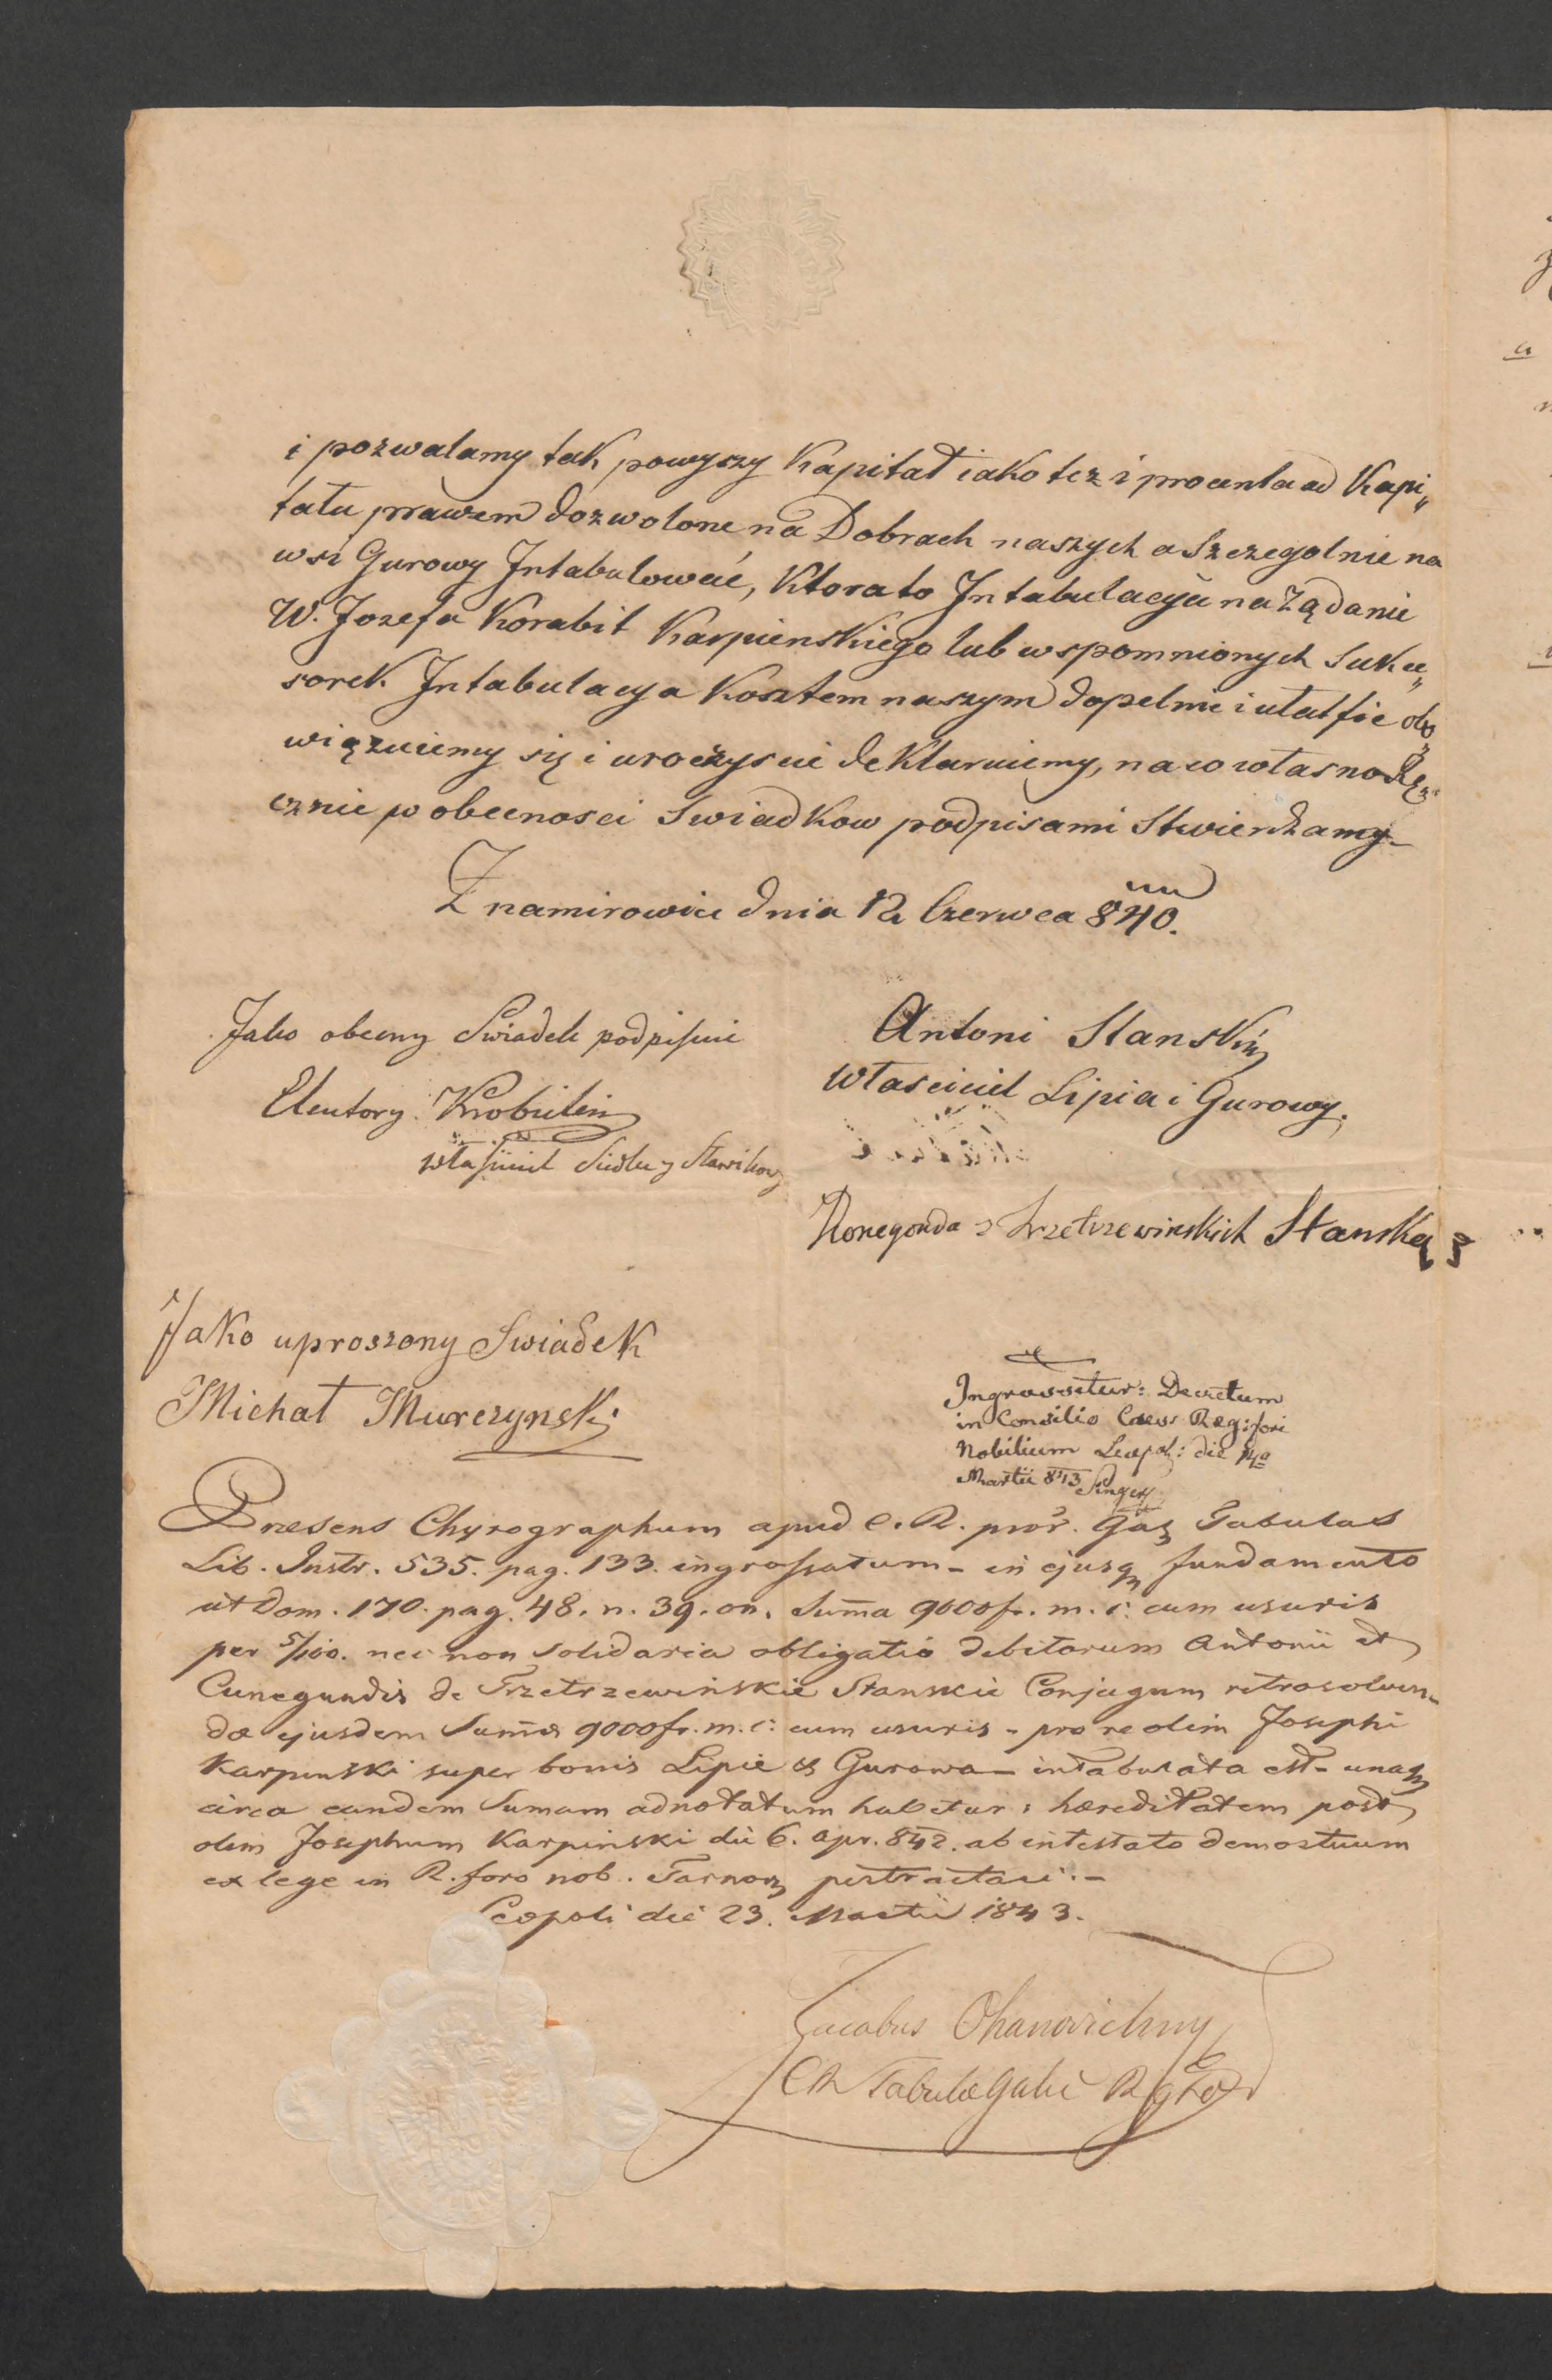 i pozwalamy tak powyszy Kapitał iako tez i procenta od Kapi„
tału prawem dozwolone na Dobrach naszych a Szczegolnie na
wsi Gurowy Intabulować, Ktora to Intabulacyia na Ządanie
W. Jozefa Korabit Karpienskiego lub wspomnionych Sukce„
sorek Intabulacya Kosztem naszym dopelnić obo„
wiązuiemy się i uroczyscie deklaruiemy, na co własnoRę„
cznie w obecnosci Swiadkow podpisami Stwierdzamy –
Znamirowice dnia 12 Czerwca 840.
Jako obecny Swiadek podpisuie
Antoni Stanski
Własciciel Lipia i Gurowy.
Eleutory
własciciel
Konegonda z Trzetrzewinskich Stanska
Jako uproszony Swiadek
Michał Murczynski
Ingrossetur: Decretum
in Consilio Caes: Reg: fori
Nobilium Leopol: die 14a
Martii 843
Praesens Chyrographum apud C. R. prov. Gal Tabulas
Lib. Instr. 535. pag. 133. ingrossatum – in ejusq fundamento
ut Dom. 170. pag. 48. n. 39. on. Sum̄a 9000 fr. m. c: cum usuris
per 5/100. nec non solidaria obligatio debitorum Antonii et
Cunegundis de Trzetrzewińskie Stanskie Conjugum retrosolven„
dæ ejusdem Sum̄æ 9000 fr. m. c: cum usuris – pro re olim Josephi
Karpinski super bonis Lipie & Gurowa – intabulata est – unaq
circa eandem Sumam adnotatum habetur: hæreditatem post
olim Josephum Karpiński die 6. Apr. 842. ab intestato demortuum
ex lege in R. foro nob. Tarnov pertractari. –
Leopoli die 23. Martii 1843.
Jacobus
CR Tabulae Galic